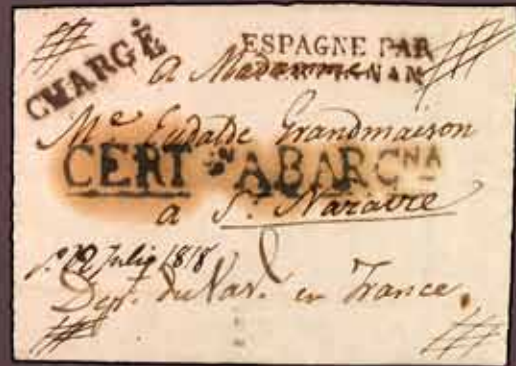 CHARGÉ
ESPAGNE PAR
a Madamme
Me Eudalde Grandmaison
CERTON ABARCNA
a St. Nazaire
12 Julio 1818
Dep. du Var. en France.